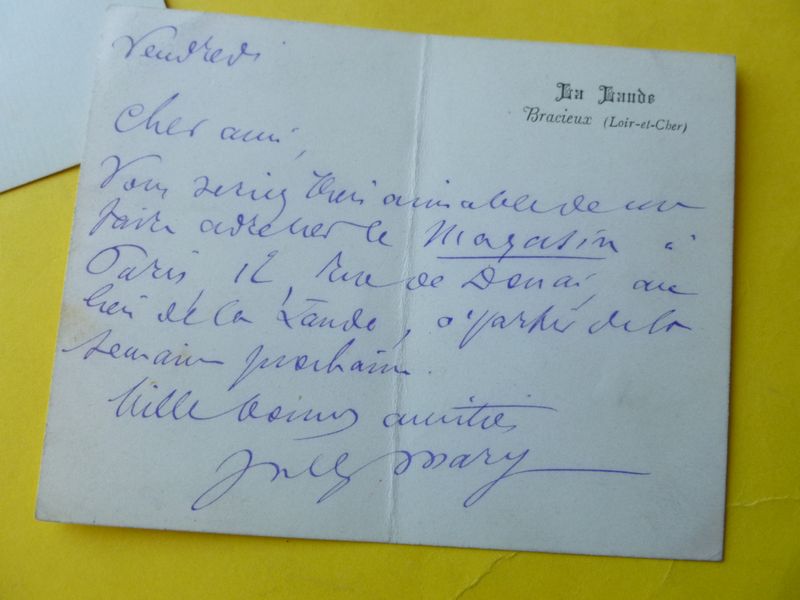 Vendredi
La Lande
Bracieux (Loir-et-Cher)
Cher ami,
Vous seriez très aimable de me
faire adresser le Magasin à
Paris, 12, rue de Douai, au
lieu de la Lande, à partir de la
semaine prochaine.
Mille bonnes amitiés
Jules Mary